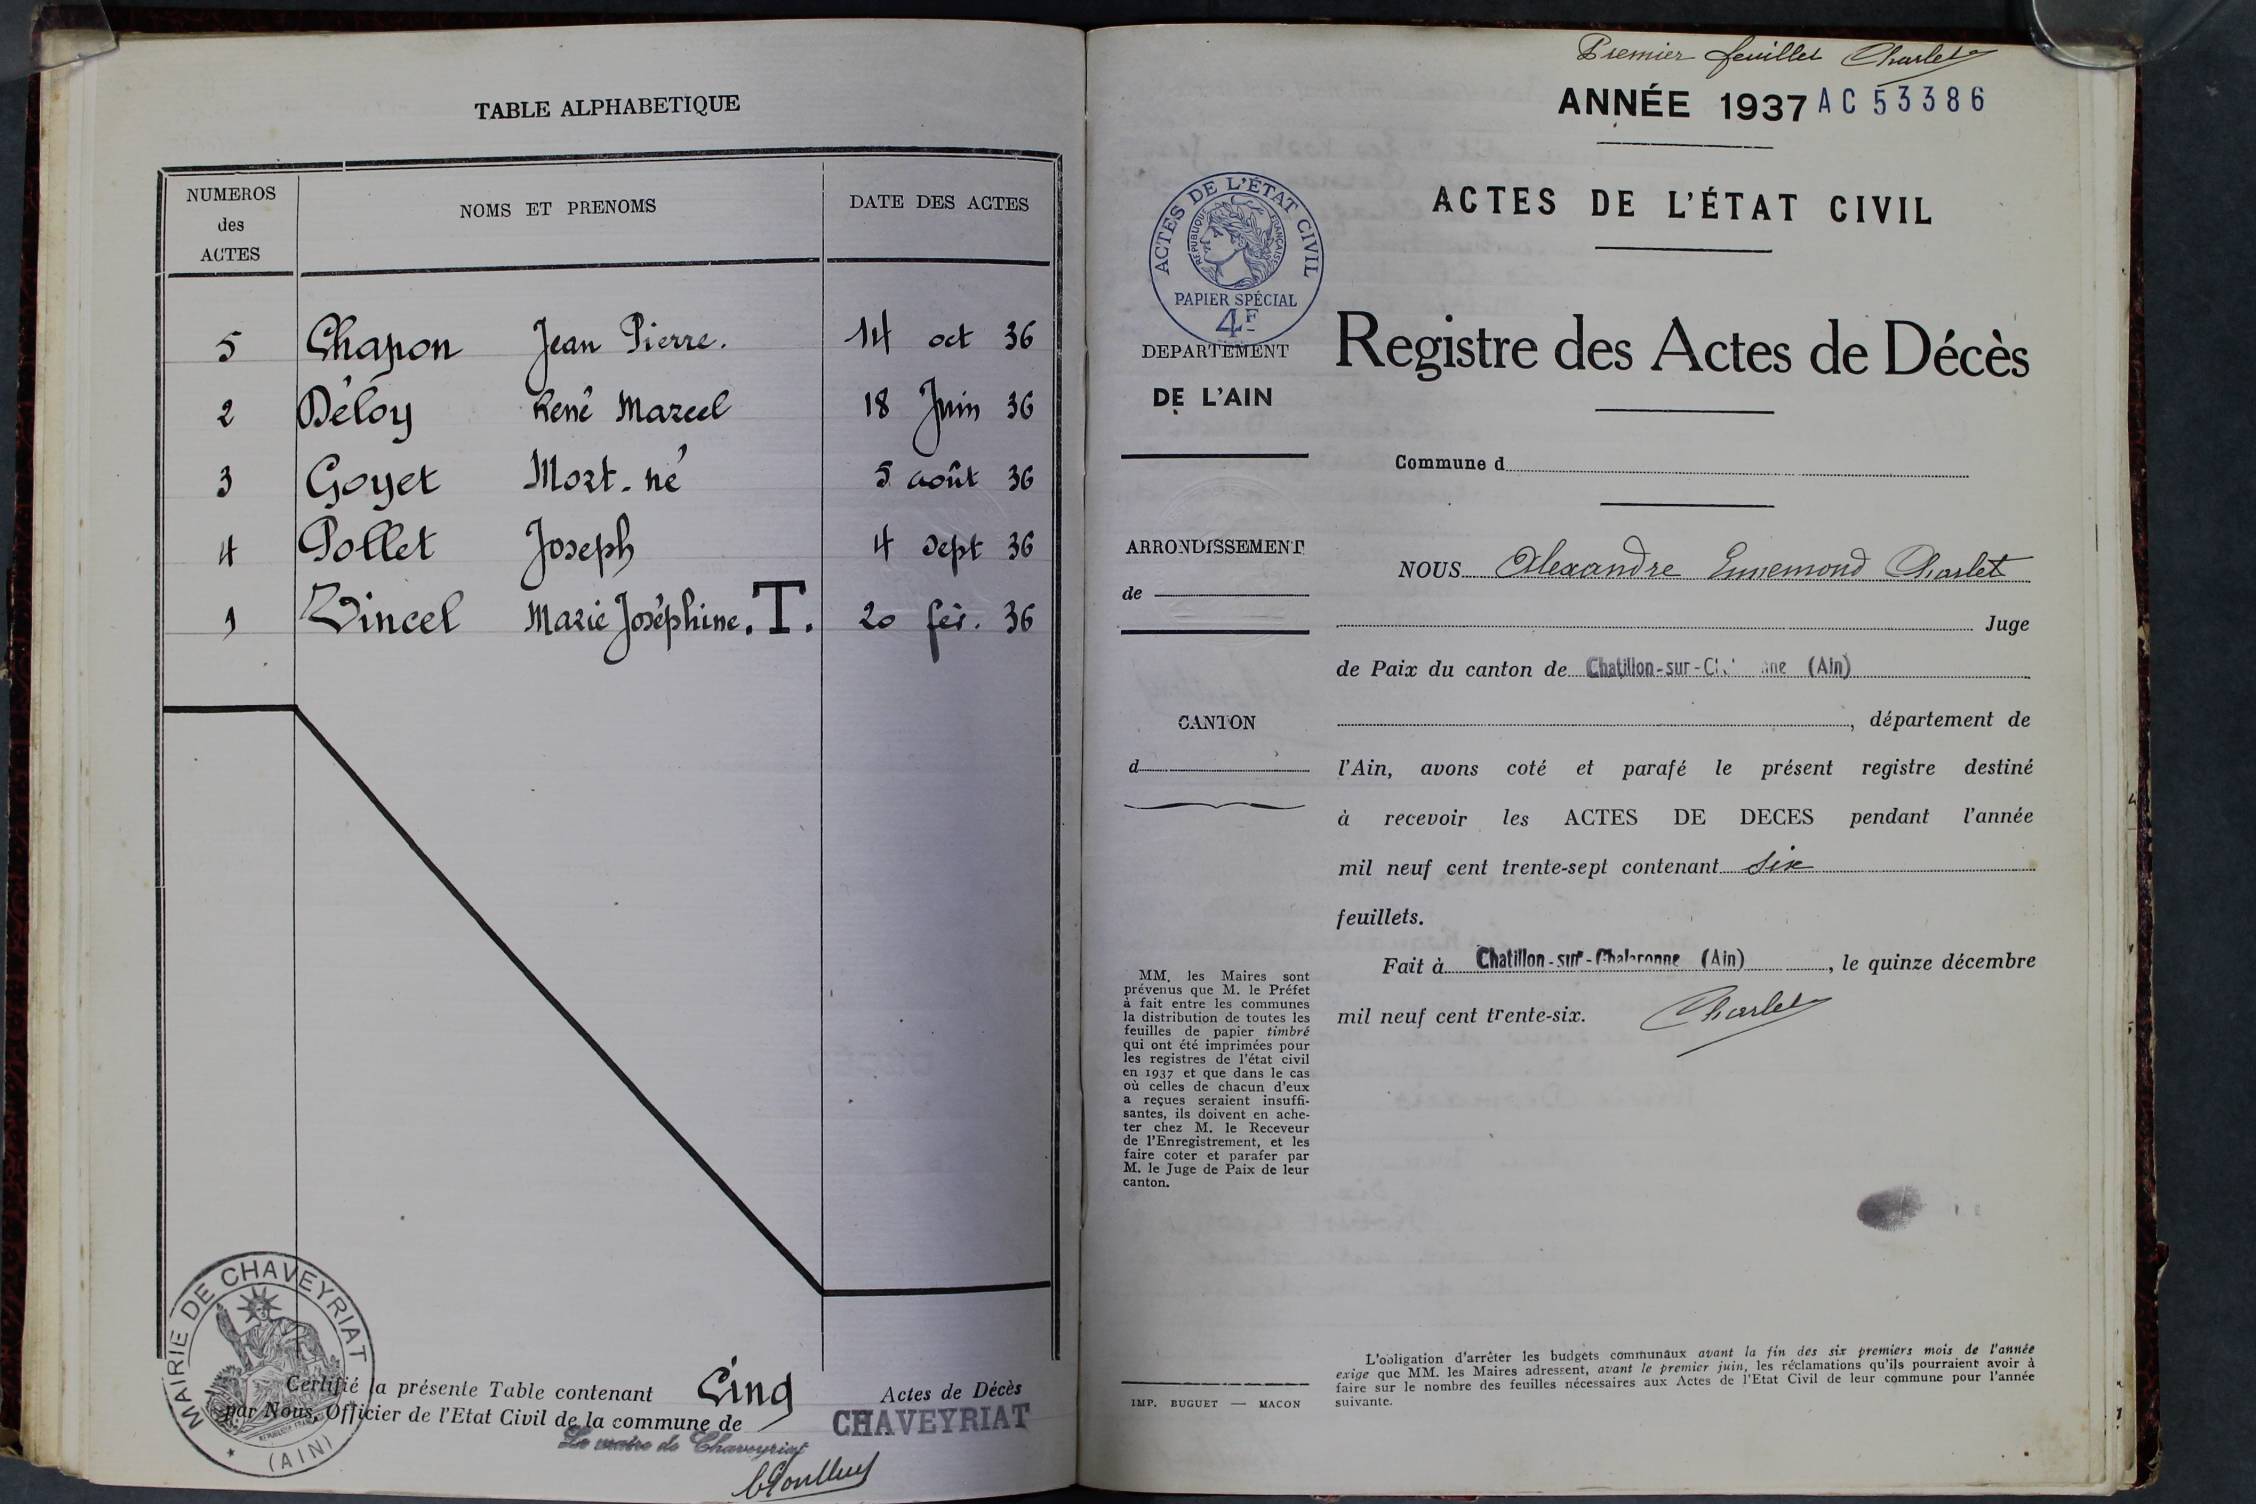 TABLE ALPHABETIQUE
NUMEROS
des
ACTES
NOMS ET PRENOMS
DATE DES ACTES
5 Chapon Jean Pierre. 14 oct 36
2 Déloy René Marcel 18 Juin 36
3 Goyet Mort-né 5 août 36
4 Pollet Joseph 4 sept 36
1 Vincel Marie Joséphine. T. 20 fév. 36
MAIRIE DE CHAVEYRIAT
(AIN)
Certifié la présente Table contenant Cinq Actes de Décès
par Nous, Officier de l'Etat Civil de la commune de CHAVEYRIAT
Le maire de Chaveyriat
Premier feuillet Charlet
ANNÉE 1937 AC 53386
ACTES DE L'ÉTAT CIVIL
RÉPUBLIQUE FRANÇAISE
PAPIER SPÉCIAL
4F
DEPARTEMENT
DE L'AIN
ARRONDISSEMENT
de
CANTON
d
MM. les Maires sont
prévenus que M. le Préfet
à fait entre les communes
la distribution de toutes les
feuilles de papier timbré
qui ont été imprimées pour
les registres de l'état civil
en 1937 et que dans le cas
où celles de chacun d'eux
a reçues seraient insuffi-
santes, ils doivent en ache-
ter chez M. le Receveur
de l'Enregistrement, et les
faire coter et parafer par
M. le Juge de Paix de leur
canton.
IMP. BUGUET — MACON
ACTES DE L'ÉTAT CIVIL
Registre des Actes de Décès
Commune d
NOUS Alexandre Ennemond Charlet
Juge
de Paix du canton de Chatillon-sur-Ch nne (Ain)
, département de
l'Ain, avons coté et parafé le présent registre destiné
à recevoir les ACTES DE DECES pendant l'année
mil neuf cent trente-sept contenant six
feuillets.
Fait à Chatillon-sur-Chalaronne (Ain), le quinze décembre
mil neuf cent trente-six. Charlet
L'obligation d'arrêter les budgets communaux avant la fin des six premiers mois de l'année
exige que MM. les Maires adressent, avant le premier juin, les réclamations qu'ils pourraient avoir à
faire sur le nombre des feuilles nécessaires aux Actes de l'Etat Civil de leur commune pour l'année
suivante.